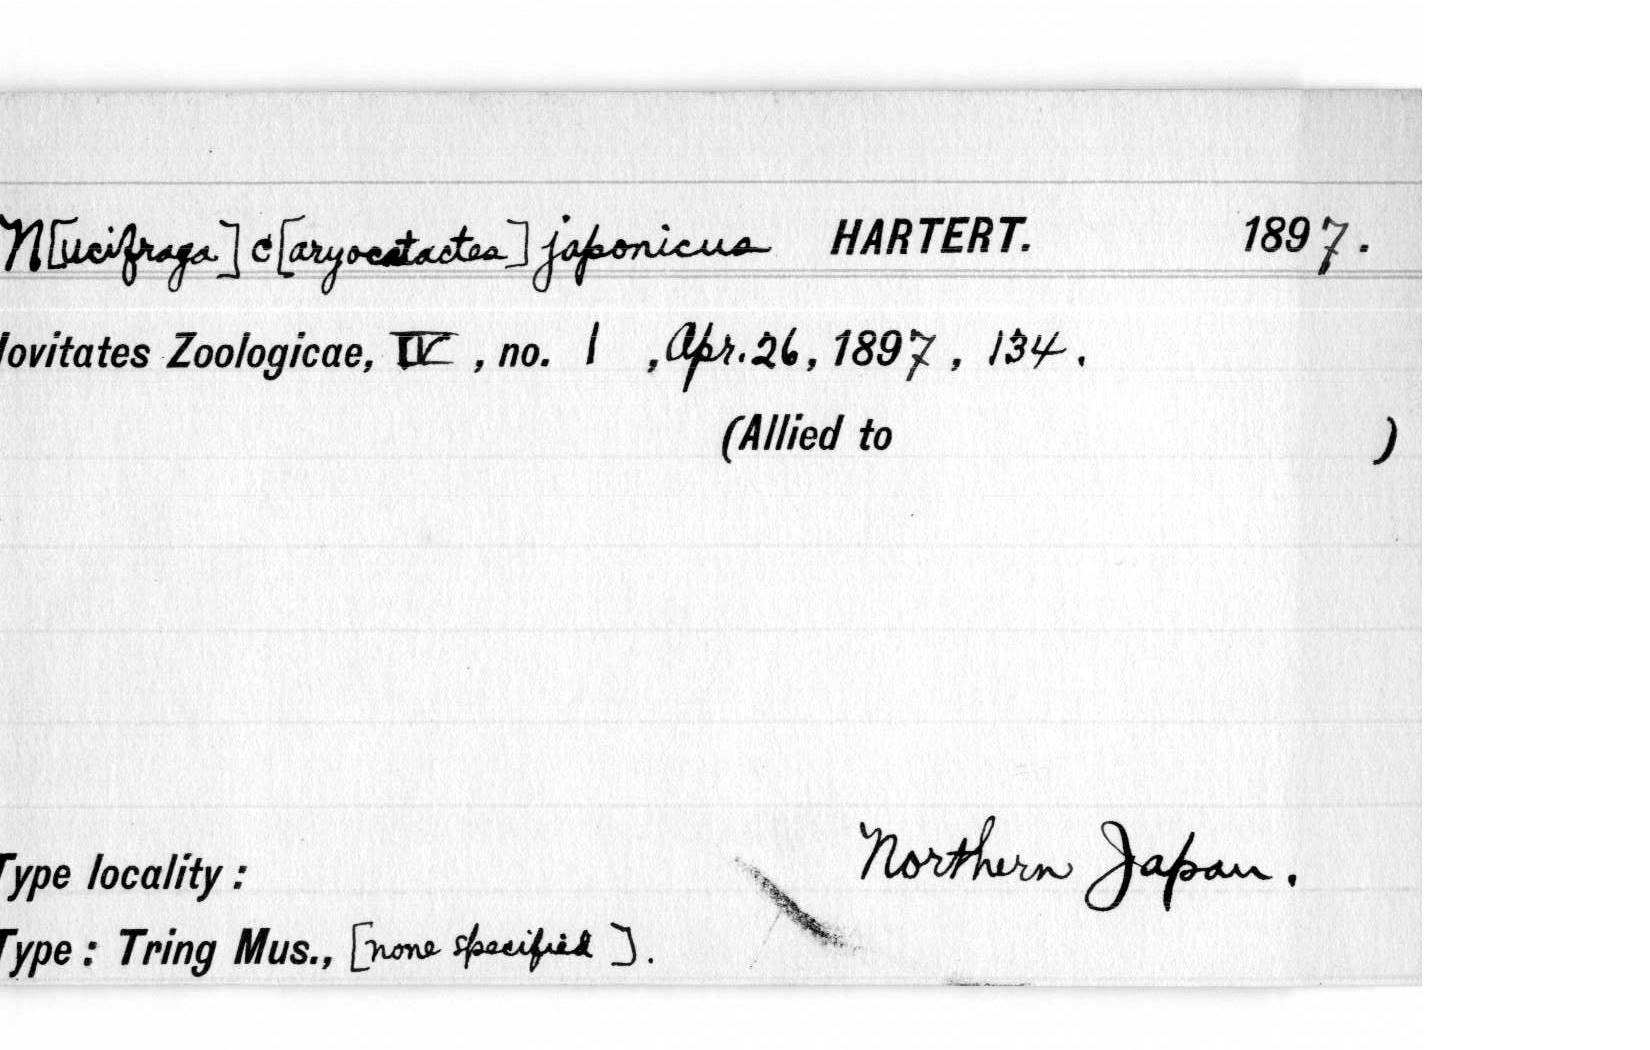 N[ucifraga] c[aryocatactes] japonicus HARTERT. 1897.
ovitates Zoologicae, IV, no. 1, Apr. 26, 1897, 134.
(Allied to )
Northern Japan.
Type locality:
Type: Tring Mus., [none specified].